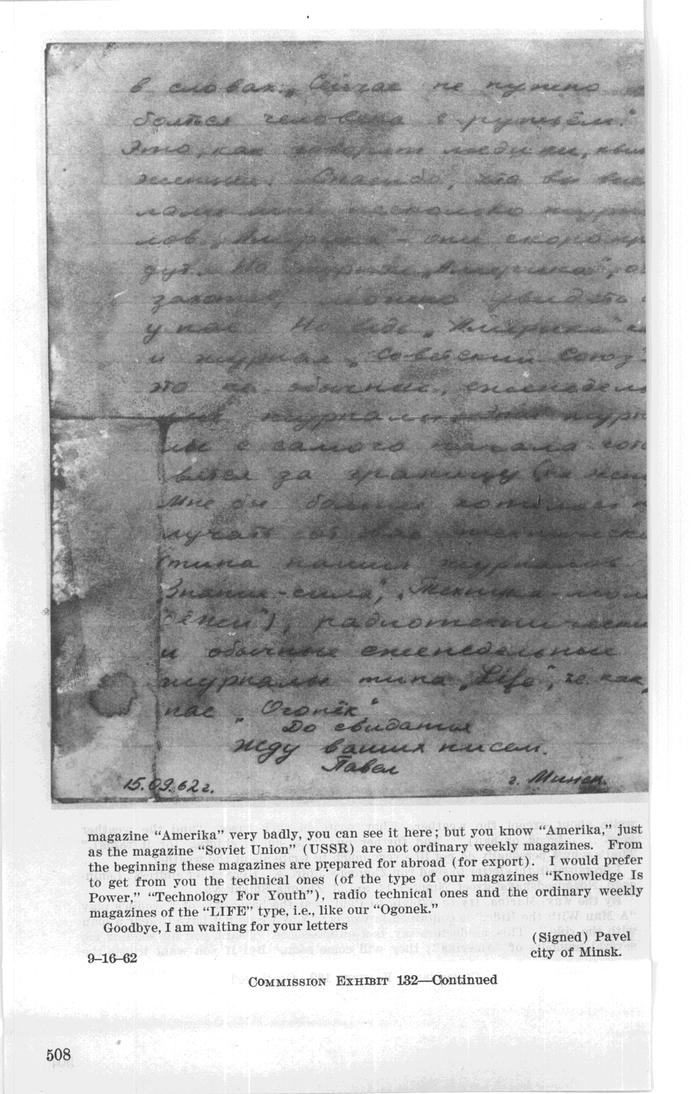 в словах: „Сейчас не нужно
бояться человека с ружьём."
Это, как говорят люди
Спасибо, что вы
несколько
лов „Америка" - они скоро
На журнал „Америка",
можно увидеть
у нас. Но ведь „Америка"
и журнал „Советский Союз"
это не обычные, еженедель
журналы.
лы с самого начала гото
вятся за границу
Мне бы больше хотелось
лучать от вас технические
(типа наших журналов
Знание-сила", „Техника-моло
дёжи"), радиотехнические
и обычные еженедельные
журналы типа „Life", т.е. как
нас „Огонёк"
До свидания
Жду ваших писем.
Павел
15.09.62г. г. Минск.
magazine “Amerika” very badly, you can see it here; but you know “Amerika,” just
as the magazine “Soviet Union” (USSR) are not ordinary weekly magazines. From
the beginning these magazines are prepared for abroad (for export). I would prefer
to get from you the technical ones (of the type of our magazines “Knowledge Is
Power,” “Technology For Youth”), radio technical ones and the ordinary weekly
magazines of the “LIFE” type, i.e., like our “Ogonek.”
Goodbye, I am waiting for your letters
(Signed) Pavel
9–16–62 city of Minsk.
COMMISSION EXHIBIT 132—Continued
508